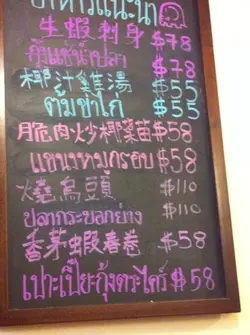 อาหารแนะนำ
生蝦刺身 $78
กุ้งแช่น้ำปลา $78
椰汁雞湯 $55
ต้มข่าไก่ $55
脆肉炒椰菜苗 $58
แขนงหมูกรอบ $58
燒烏頭 $110
ปลากระบอกย่าง $110
香茅蝦春卷 $58
เปาะเปี๊ยะกุ้งตระไคร้ $58